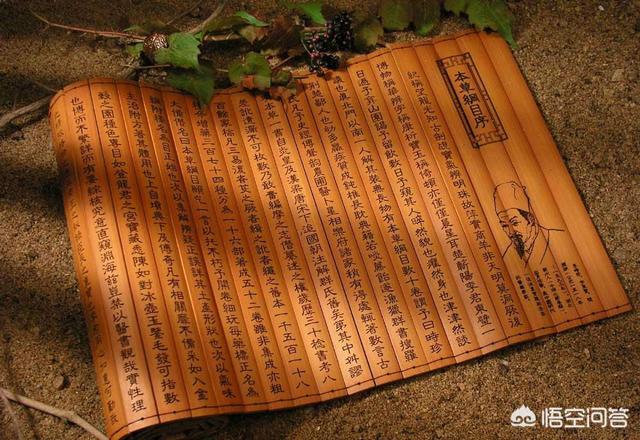 本草綱目序
紀稱望龍光知古劍覘寶氣辨明珠故萍實商羊非天明莫洞厥後
博物稱華辨字稱康析寶玉稱倚頓亦僅僅晨星耳楚蘄陽李君東璧一
日過予弇山園謁予留飲數日予窺其人睟然貌也癯然身也津津然談
議也真北斗以南一人解其裝無長物有本草綱目數十卷謂予曰時珍
荊楚鄙人也幼多羸疾質成鈍椎長耽典籍若啖蔗飴遂漁獵群書搜羅
百氏凡子史經傳聲韻農圃醫卜星相樂府諸家稍有得處輒著數言古
有本草一書自炎皇及漢梁唐宋下迨國朝注解群氏舊矣第其中舛謬
差訛遺漏不可枚數乃敢奮編摩之志僭纂述之權歲歷三十稔書考八
百餘家稿凡三易復者芟之闕者緝之訛者繩之舊本一千五百一十八
種今增藥三百七十四種分為一十六部著成五十二卷雖非集成亦粗
大備僭名曰本草綱目願乞一言以托不朽予開卷細玩每藥標正名為
綱附釋名為目正始也次以集解辨疑正誤詳其土產形狀也次以氣味
主治附方著其體用也上自墳典下及傳奇凡有相關靡不備采如入金
谷之園種色奪目如登龍君之宮寶藏悉陳如對冰壺玉鑒毛髮可指數
也博而不繁詳而有要綜核究竟直窺淵海茲豈禁以醫書觀哉實性理
悟空问答